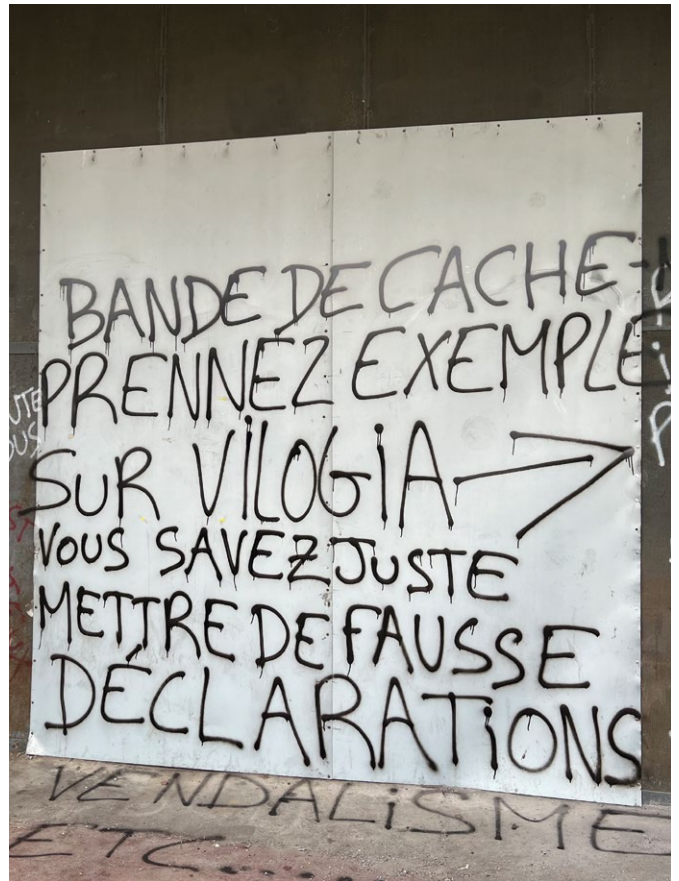 BANDE DE CACHE-
PRENNEZ EXEMPLE
SUR VILOGIA
VOUS SAVEZ JUSTE
METTRE DE FAUSSE
DÉCLARATIONS
VENDALISME
ETC.....